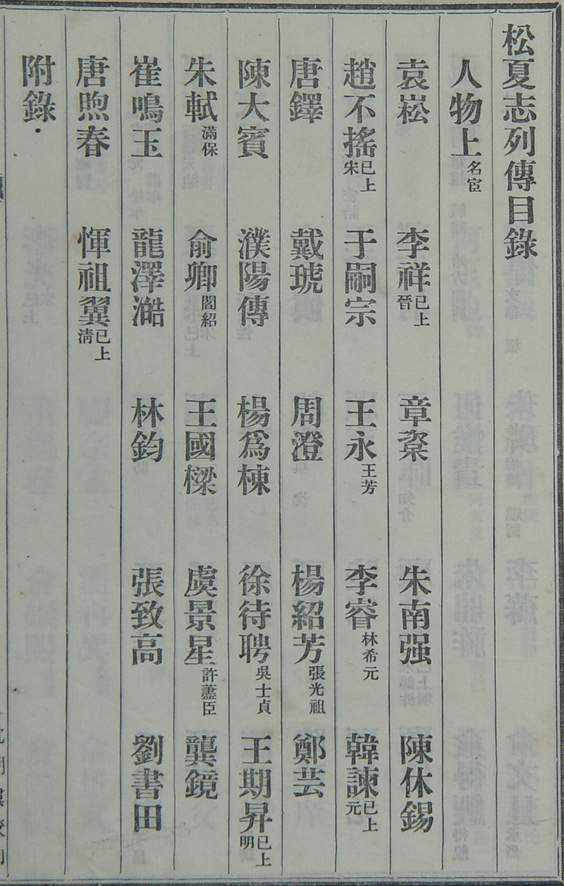 松夏志列傳目錄
人物上名宦
袁崧 李祥已上晉 章楶 朱南强 陳休錫
趙不搖已上宋 于嗣宗 王永王芳 李睿林希元 韓諫已上元
唐鐸 戴琥 周澄 楊紹芳張光祖 鄭芸
陳大賓 濮陽傳 楊爲棟 徐待聘吳士貞 王期昇已上明
朱軾滿保 俞卿閣紹 王國樑 虞景星許藎臣 龔鏡
崔鳴玉 龍澤澔 林鈞 張致高 劉書田
唐煦春 惲祖翼已上淸
附錄